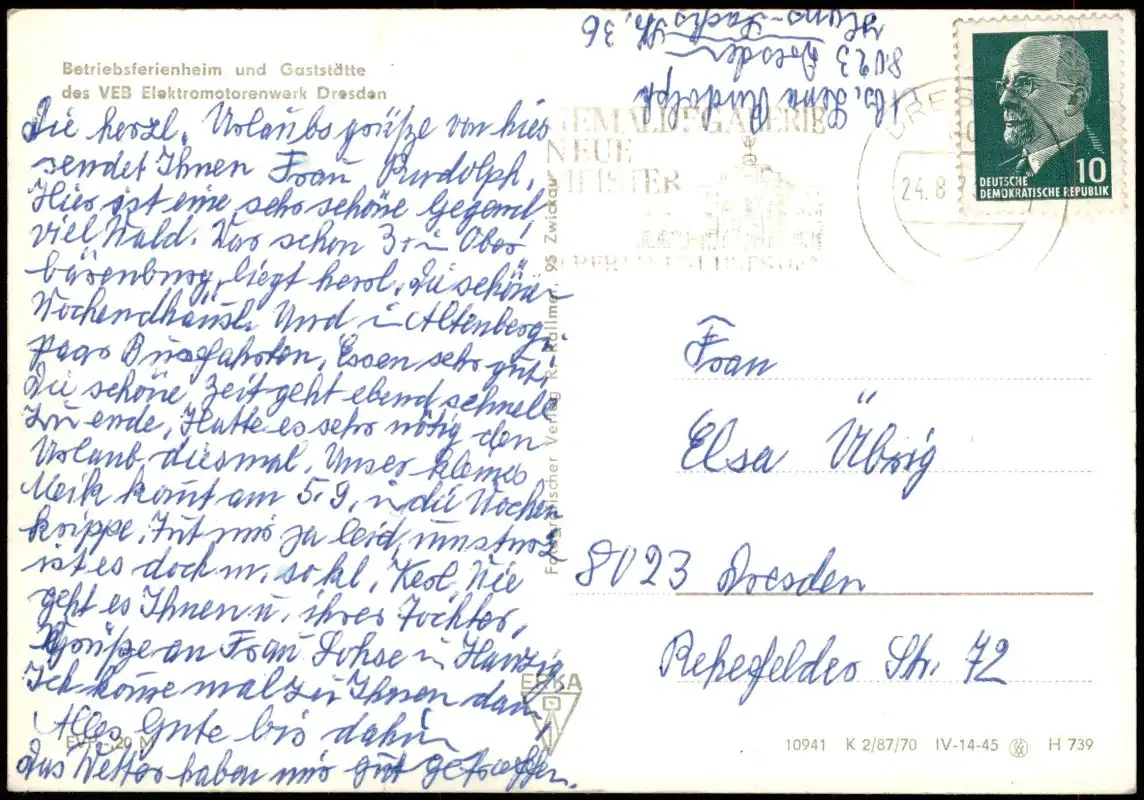 Betriebsferienheim und Gaststätte
des VEB Elektromotorenwerk Dresden
Die herzl. Urlaubsgrüße von hier
sendet Ihnen Frau Rudolph.
Hier ist eine sehr schöne Gegend,
viel Wald. War schon 3x in Ober
bärenburg, liegt herrl. Die schönen
Wochendhäusl. Und in Altenberg,
paar Busfahrten, Essen sehr gut,
Die schöne Zeit geht ebend schnell
zu ende, Hatte es sehr nötig den
Urlaub diesmal, Unser kleines
Meik komt am 5.9. in die Wochen
krippe. Tut mir ja leid,
ist es doch n. so kl. Kerl. Wie
geht es Ihnen u. ihrer Tochter,
Grüße an Frau Lohse in
Ich kome mal zu Ihnen dan,
Alles Gute bis dahin
Das Wetter haben mir gut getroffen.
Abs. Lena Rudolph
8023 Dresden
Hans-Sachs Str, 36
GEMÄLDEGALERIE
NEUE
MEISTER
DRESDEN
24. 8
10
DEUTSCHE
DEMOKRATISCHE REPUBLIK
Fotografischer Verlag R. Kallmer, 95 Zwickau
Frau
Elsa Übrig
8023 Dresden
Rehefelder Str. 72
ERKA
EVP -,20 M
10941 K 2/87/70 IV-14-45 H 739